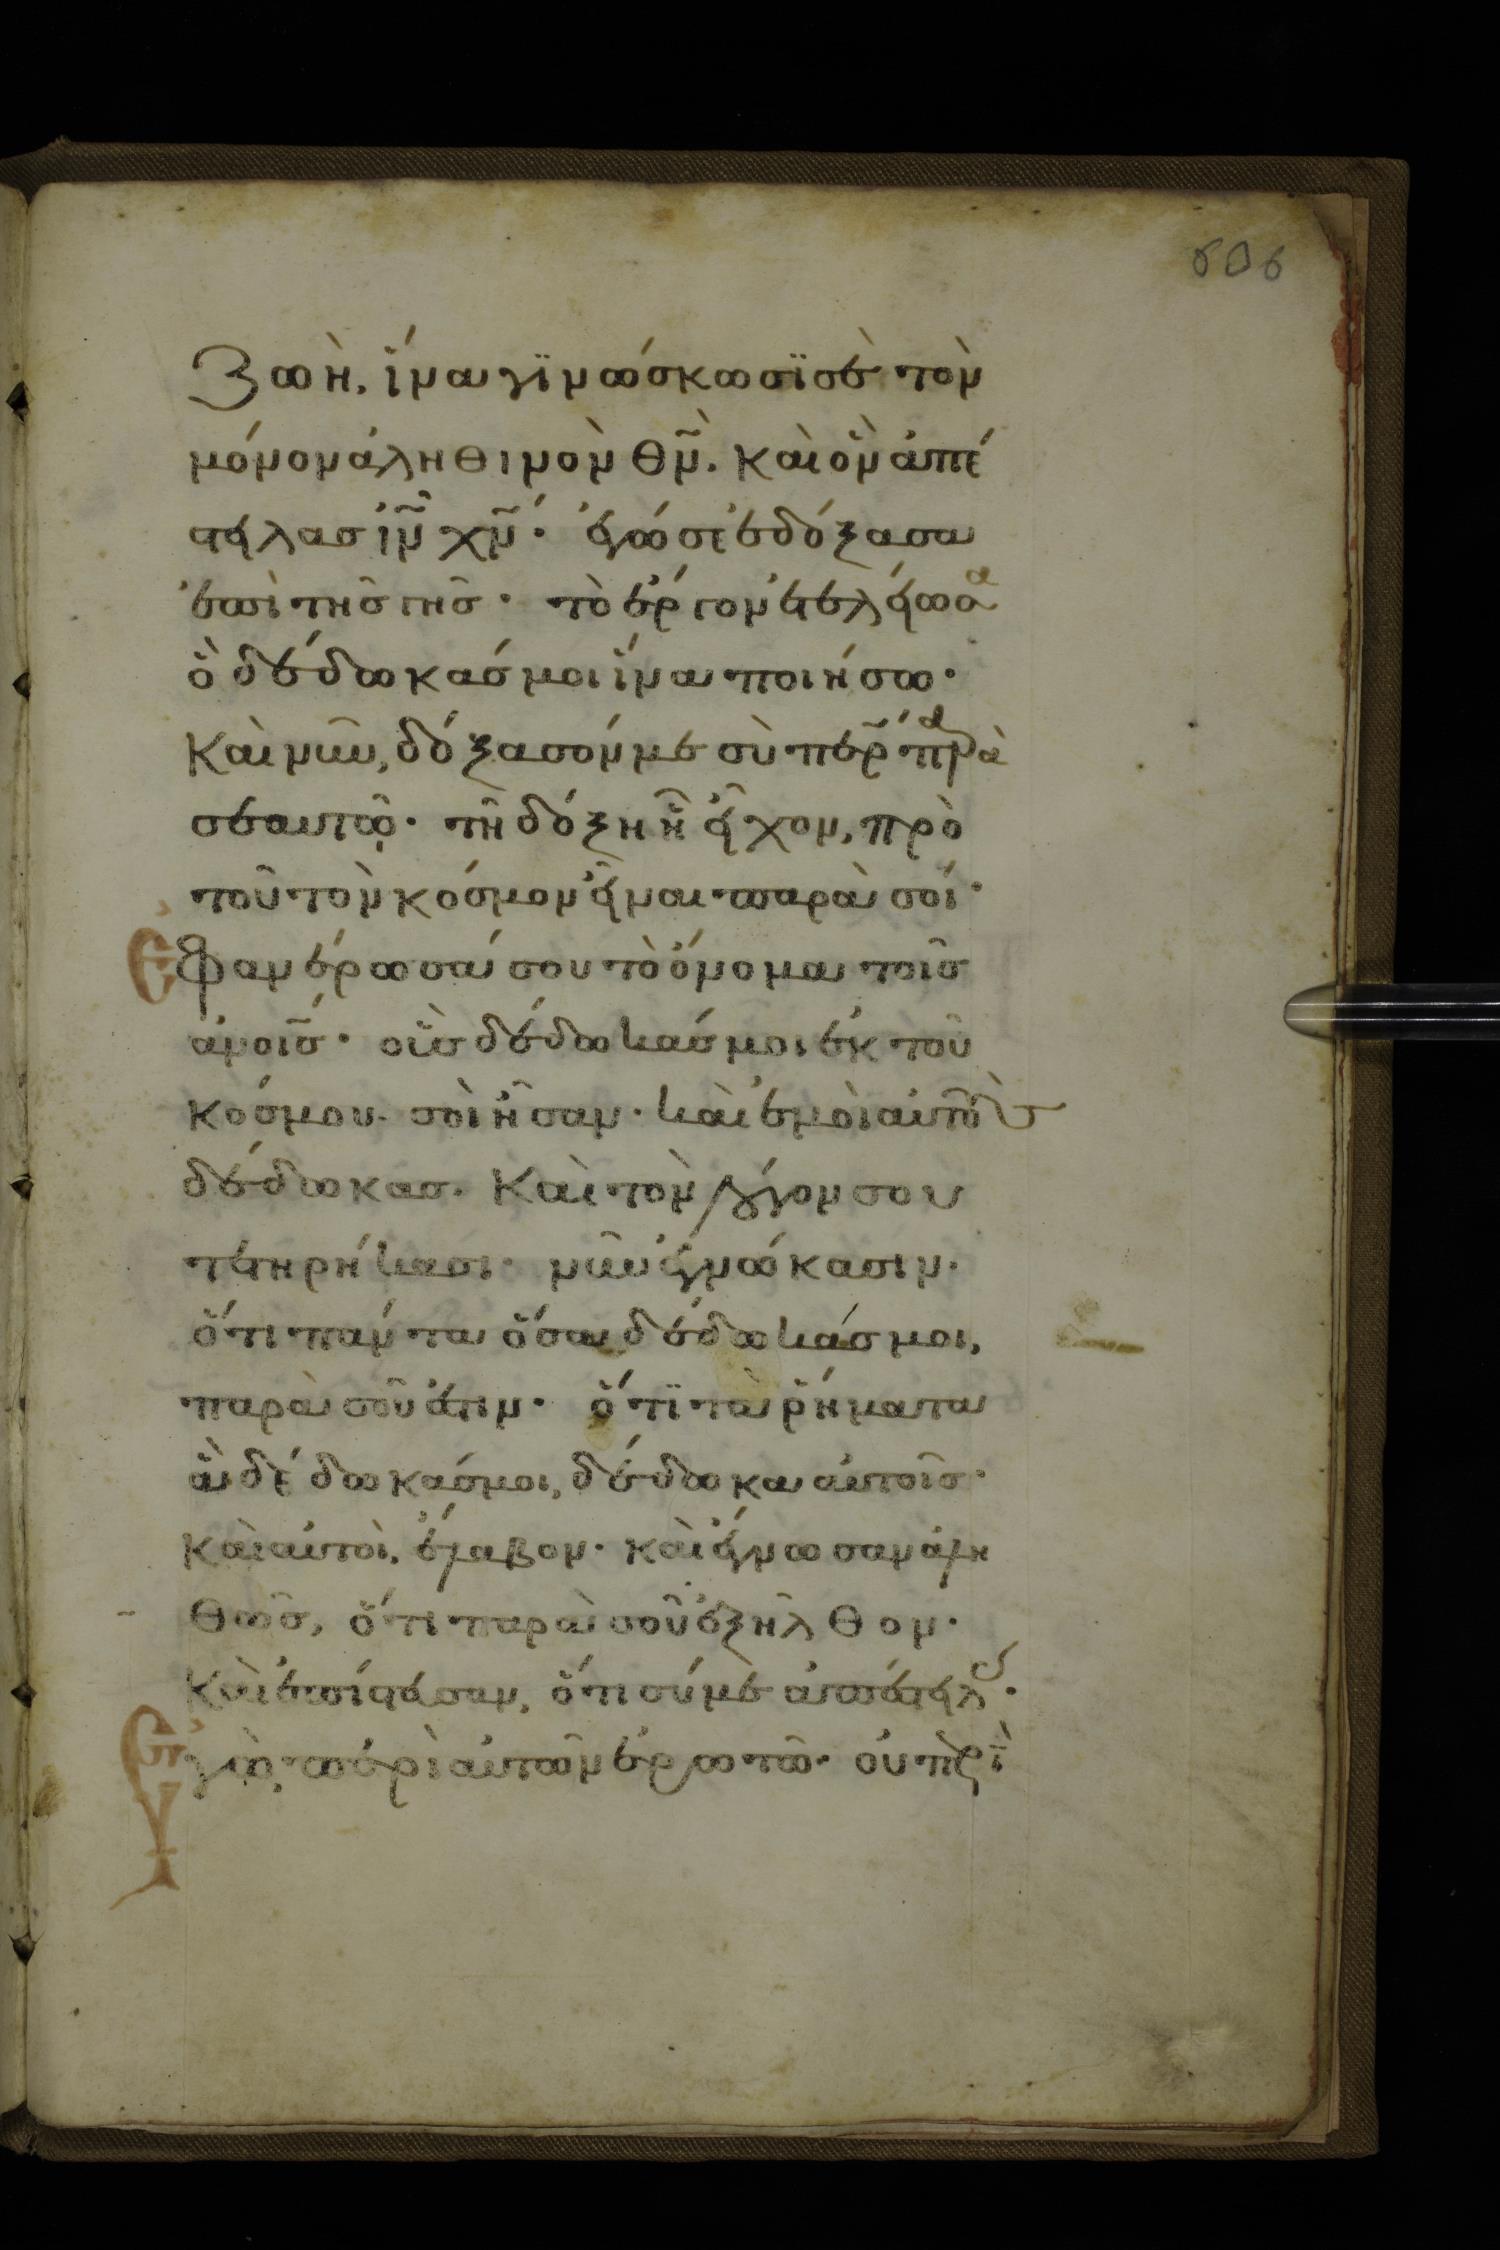 606
ζωὴ, ἵνα γϊνώσκωσϊ σὲ τὸν
μόνον ἀληθινὸν θν̃. καὶ ὃν ἀπέ
στειλασ ἰν̃ χν̃· ἐγώ σε ἐδόξασα
ἐπὶ τῆσ γῆσ· τὸ ἔργον ἐτελείωσα
ὃ δέδωκάσ μοι ἵνα ποιήσω·
καὶ νῦν, δόξασόν με σὺ περ̃ παρὰ
σεαυτῶ· τῆ δόξη ἧ εἶχον, πρὸ
τοῦ τὸν κόσμον εἶναι παρὰ σοί·
Ἐφανέρωσά σου τὸ ὄνομα τοῖσ
ἀνοισ̃· οὓσ δέδωκάσ μοι ἐκ τοῦ
κόσμου· σοὶ ἦσαν· καὶ ἐμοὶ αὐτοὺσ
δέδωκασ. καὶ τὸν λόγον σου
τετηρήκασι· νῦν ἔγνώκασιν·
ὅτι πάντα ὅσα δέδωκάσ μοι,
παρὰ σοῦ ἐστιν· ὅτϊ τὰ ῥήματα
ἃ δέδωκάσ μοι, δέδωκα αὐτοῖσ·
καὶ αὐτοὶ, ἔλαβον· καὶ ἔγνωσαν ἀλη
θῶσ, ὅτι παρὰ σοῦ ἐξῆλθον·
καὶ ἐπίστευσαν, ὅτι σύ με ἀπέστειλασ·
Ἐγὼ περὶ αὐτῶν ἐρωτῶ· οὐ περὶ